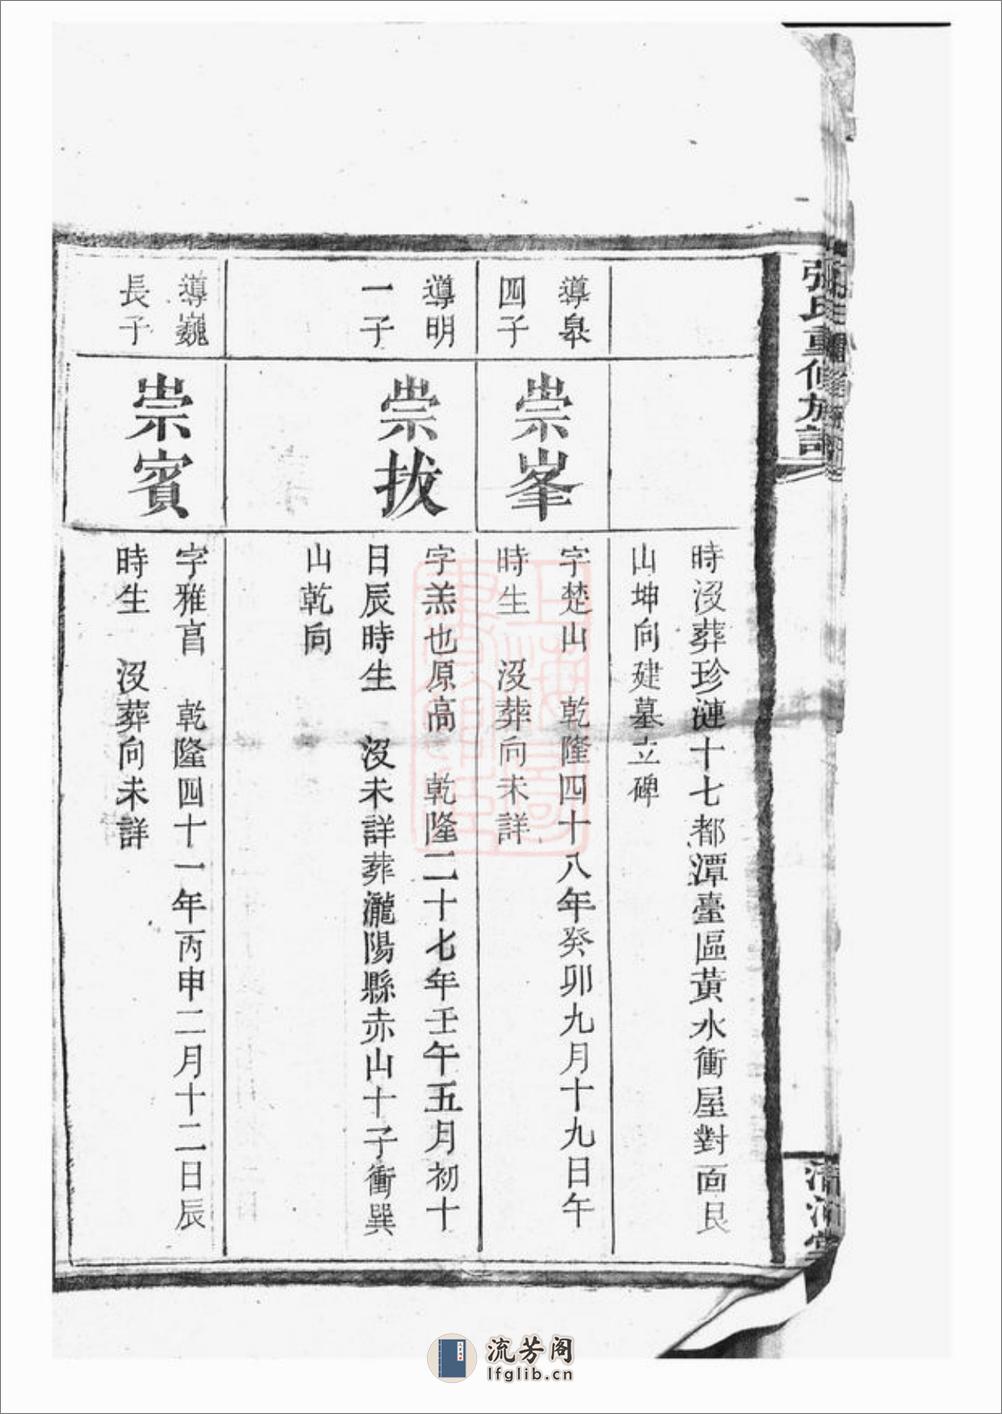 張氏重修族譜
時沒葬珍漣十七都潭臺區黃水衝屋對面艮
山坤向建墓立碑
導皋
四子
崇峯
字楚山 乾隆四十八年癸卯九月十九日午
時生 沒葬向未詳
導明
一子
崇拔
字羔也原高 乾隆二十七年壬午五月初十
日辰時生 沒未詳葬瀧陽縣赤山十子衝巽
山乾向
導巍
長子
崇賓
字雅亯 乾隆四十一年丙申二月十二日辰
時生 沒葬向未詳
清河堂
流芳阁
lfglib.cn